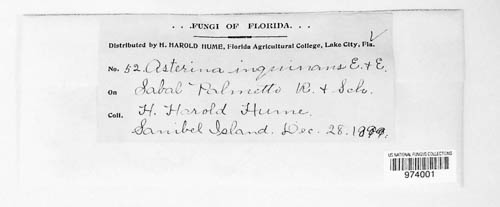 . . . FUNGI OF FLORIDA. . . .
Distributed by H. HAROLD HUME, Florida Agricultural College, Lake City, Fla.
No. 52. Asterina inquinans E. & E.
On Sabal Palmetto R. & Sch.
Coll. H. Harold Hume.
Sanibel Island. Dec. 28. 1899.
US NATIONAL FUNGUS COLLECTIONS
974001